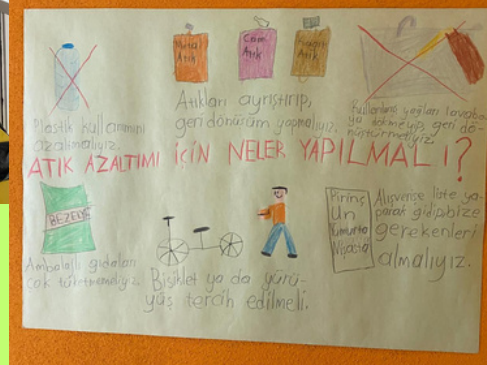 Metal
Atık
Cam
Atık
Atık
Plastik kullanımını
azaltmalıyız.
Atıkları ayrıştırıp,
geri dönüşüm yapmalıyız.
Kullanılmış yağları lavaboya
ya dökmeyip, geri dö-
nüştürmeliyiz.
ATIK AZALTIMI İÇİN NELER YAPILMALI?
BEZELYE
Ambalajlı gıdaları
çok tüketmemeliyiz.
Bisiklet ya da yürü-
yüş tercih edilmeli.
Pirinç
Un
Yumurta
Nişasta
Alışverişe liste ya-
parak gidip, bize
gerekenleri
almalıyız.